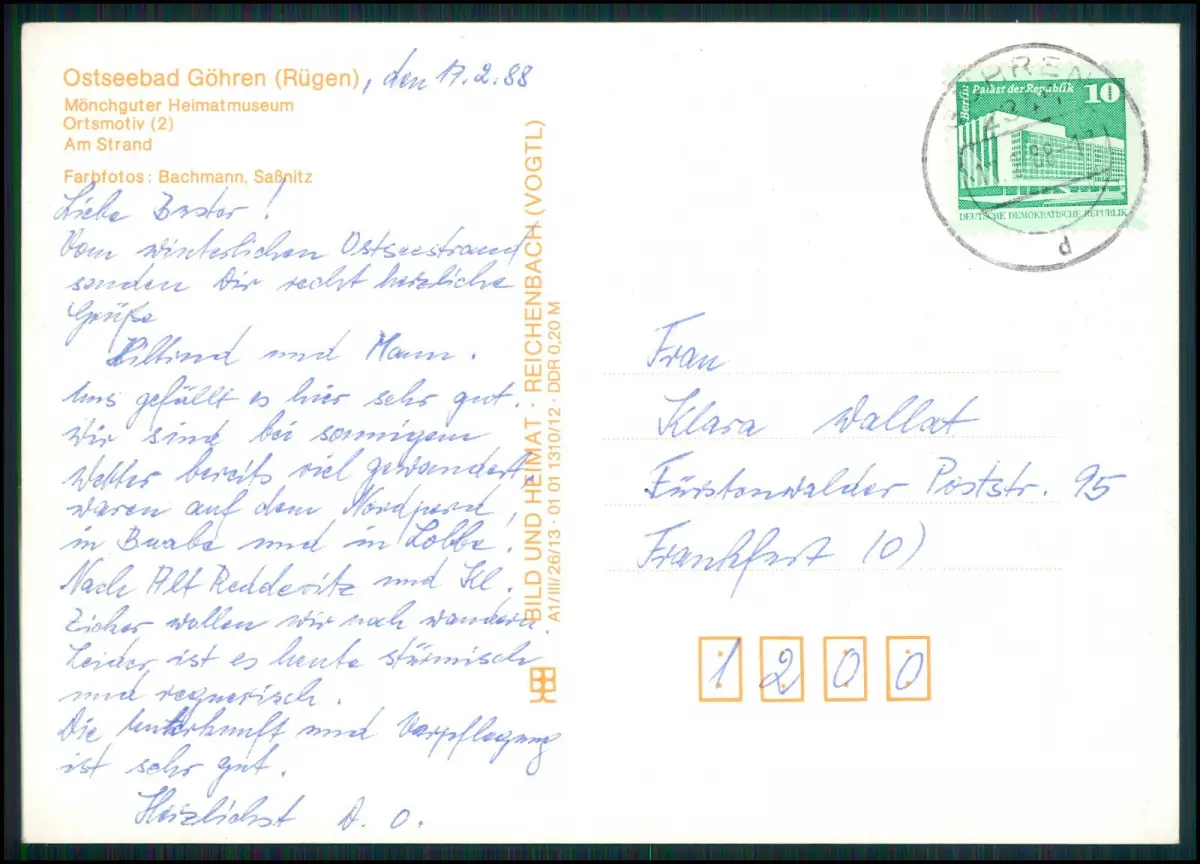 Ostseebad Göhren (Rügen), den 17.2.88
Mönchguter Heimatmuseum
Ortsmotiv (2)
Am Strand
Farbfotos: Bachmann, Saßnitz
Liebe
Vom winterlichen Ostseestrand
senden Dir recht herzliche
Grüße
und Mann.
Uns gefällt es hier sehr gut.
Wir sind bei sonnigem
Wetter bereits viel gewandert,
waren auf dem Nordperd,
in Baabe und in Lobbe.
Nach Alt Reddevitz und Kl.
Zicker wollen wir noch wandern.
Leider ist es heute stürmisch
und regnerisch.
Die Unterkunft und Verpflegung
ist sehr gut.
Herzlichst A. O.
BILD UND HEIMAT · REICHENBACH (VOGTL)
A1/III/26/13 · 01 01 1310/12 · DDR 0,20 M
Berlin Palast der Republik 10
DEUTSCHE DEMOKRATISCHE REPUBLIK
Frau
Klara Wallat
Fürstenwalder Poststr. 95
Frankfurt (O)
1200